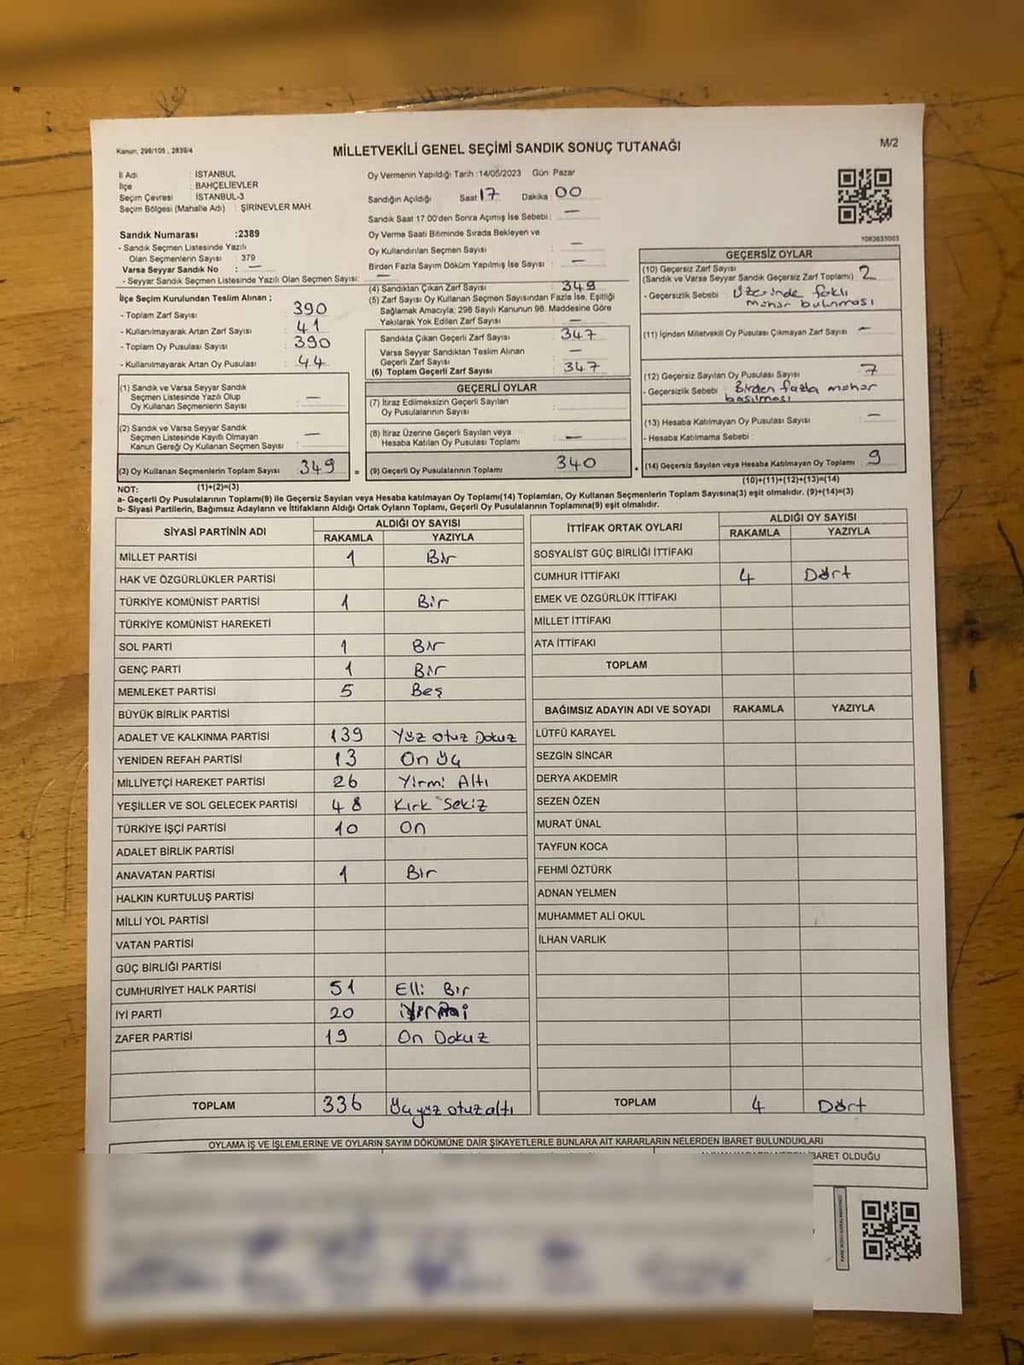 Kanun: 298/105 , 2839/4
MİLLETVEKİLİ GENEL SEÇİMİ SANDIK SONUÇ TUTANAĞI
M/2
İl Adı : İSTANBUL
İlçe : BAHÇELİEVLER
Seçim Çevresi : İSTANBUL-3
Seçim Bölgesi (Mahalle Adı) : ŞİRİNEVLER MAH.
Sandık Numarası :2389
- Sandık Seçmen Listesinde Yazılı
Olan Seçmenlerin Sayısı : 379
Varsa Seyyar Sandık No : —
- Seyyar Sandık Seçmen Listesinde Yazılı Olan Seçmen Sayısı: —
İlçe Seçim Kurulundan Teslim Alınan ;
- Toplam Zarf Sayısı : 390
- Kullanılmayarak Artan Zarf Sayısı : 41
- Toplam Oy Pusulası Sayısı : 390
- Kullanılmayarak Artan Oy Pusulası : 44
(1) Sandık ve Varsa Seyyar Sandık
Seçmen Listesinde Yazılı Olup
Oy Kullanan Seçmenlerin Sayısı : —
(2) Sandık ve Varsa Seyyar Sandık
Seçmen Listesinde Kayıtlı Olmayan
Kanun Gereği Oy Kullanan Seçmen Sayısı : —
(3) Oy Kullanan Seçmenlerin Toplam Sayısı : 349
(1)+(2)=(3)
Oy Vermenin Yapıldığı Tarih :14/05/2023 Gün Pazar
Sandığın Açıldığı Saat 17 Dakika 00
Sandık Saat 17.00'den Sonra Açılmış İse Sebebi : —
Oy Verme Saati Bitiminde Sırada Bekleyen ve
Oy Kullandırılan Seçmen Sayısı : —
Birden Fazla Sayım Döküm Yapılmış İse Sayısı : —
(4) Sandıktan Çıkan Zarf Sayısı : 349
(5) Zarf Sayısı Oy Kullanan Seçmen Sayısından Fazla İse, Eşitliği
Sağlamak Amacıyla; 298 Sayılı Kanunun 98. Maddesine Göre
Yakılarak Yok Edilen Zarf Sayısı : —
Sandıkta Çıkan Geçerli Zarf Sayısı : 347
Varsa Seyyar Sandıktan Teslim Alınan
Geçerli Zarf Sayısı : —
(6) Toplam Geçerli Zarf Sayısı : 347
GEÇERLİ OYLAR
(7) İtiraz Edilmeksizin Geçerli Sayılan
Oy Pusulalarının Sayısı :
(8) İtiraz Üzerine Geçerli Sayılan veya
Hesaba Katılan Oy Pusulası Toplamı : —
(9) Geçerli Oy Pusulalarının Toplamı : 340
GEÇERSİZ OYLAR
(10) Geçersiz Zarf Sayısı
(Sandık ve Varsa Seyyar Sandık Geçersiz Zarf Toplamı) : 2
- Geçersizlik Sebebi : Üzerinde faklı
mühür bulunması
(11) İçinden Milletvekili Oy Pusulası Çıkmayan Zarf Sayısı : —
(12) Geçersiz Sayılan Oy Pusulası Sayısı : 7
- Geçersizlik Sebebi : Birden fazla mühür
basılması
(13) Hesaba Katılmayan Oy Pusulası Sayısı : —
- Hesaba Katılmama Sebebi :
(14) Geçersiz Sayılan veya Hesaba Katılmayan Oy Toplamı : 9
(10)+(11)+(12)+(13)=(14)
NOT:
a- Geçerli Oy Pusulalarının Toplamı(9) ile Geçersiz Sayılan veya Hesaba katılmayan Oy Toplamı(14) Toplamları, Oy Kullanan Seçmenlerin Toplam Sayısına(3) eşit olmalıdır. (9)+(14)=(3)
b- Siyasi Partilerin, Bağımsız Adayların ve İttifakların Aldığı Oyların Toplamı, Geçerli Oy Pusulalarının Toplamına(9) eşit olmalıdır.
SİYASİ PARTİNİN ADI ALDIĞI OY SAYISI
RAKAMLA YAZIYLA
MİLLET PARTİSİ 1 Bir
HAK VE ÖZGÜRLÜKLER PARTİSİ
TÜRKİYE KOMÜNİST PARTİSİ 1 Bir
TÜRKİYE KOMÜNİST HAREKETİ
SOL PARTİ 1 Bir
GENÇ PARTİ 1 Bir
MEMLEKET PARTİSİ 5 Beş
BÜYÜK BİRLİK PARTİSİ
ADALET VE KALKINMA PARTİSİ 139 Yüz otuz Dokuz
YENİDEN REFAH PARTİSİ 13 On Üç
MİLLİYETÇİ HAREKET PARTİSİ 26 Yirmi Altı
YEŞİLLER VE SOL GELECEK PARTİSİ 48 Kırk Sekiz
TÜRKİYE İŞÇİ PARTİSİ 10 On
ADALET BİRLİK PARTİSİ
ANAVATAN PARTİSİ 1 Bir
HALKIN KURTULUŞ PARTİSİ
MİLLİ YOL PARTİSİ
VATAN PARTİSİ
GÜÇ BİRLİĞİ PARTİSİ
CUMHURİYET HALK PARTİSİ 51 Elli Bir
İYİ PARTİ 20
ZAFER PARTİSİ 19 On Dokuz
TOPLAM 336 Üç yüz otuz altı
İTTİFAK ORTAK OYLARI ALDIĞI OY SAYISI
RAKAMLA YAZIYLA
SOSYALİST GÜÇ BİRLİĞİ İTTİFAKI
CUMHUR İTTİFAKI 4 Dört
EMEK VE ÖZGÜRLÜK İTTİFAKI
MİLLET İTTİFAKI
ATA İTTİFAKI
TOPLAM
BAĞIMSIZ ADAYIN ADI VE SOYADI RAKAMLA YAZIYLA
LÜTFÜ KARAYEL
SEZGİN SİNCAR
DERYA AKDEMİR
SEZEN ÖZEN
MURAT ÜNAL
TAYFUN KOCA
FEHMİ ÖZTÜRK
ADNAN YELMEN
MUHAMMET ALİ OKUL
İLHAN VARLIK
TOPLAM 4 Dört
OYLAMA İŞ VE İŞLEMLERİNE VE OYLARIN SAYIM DÖKÜMÜNE DAİR ŞİKAYETLERLE BUNLARA AİT KARARLARIN NELERDEN İBARET BULUNDUKLARI
İBARET OLDUĞU